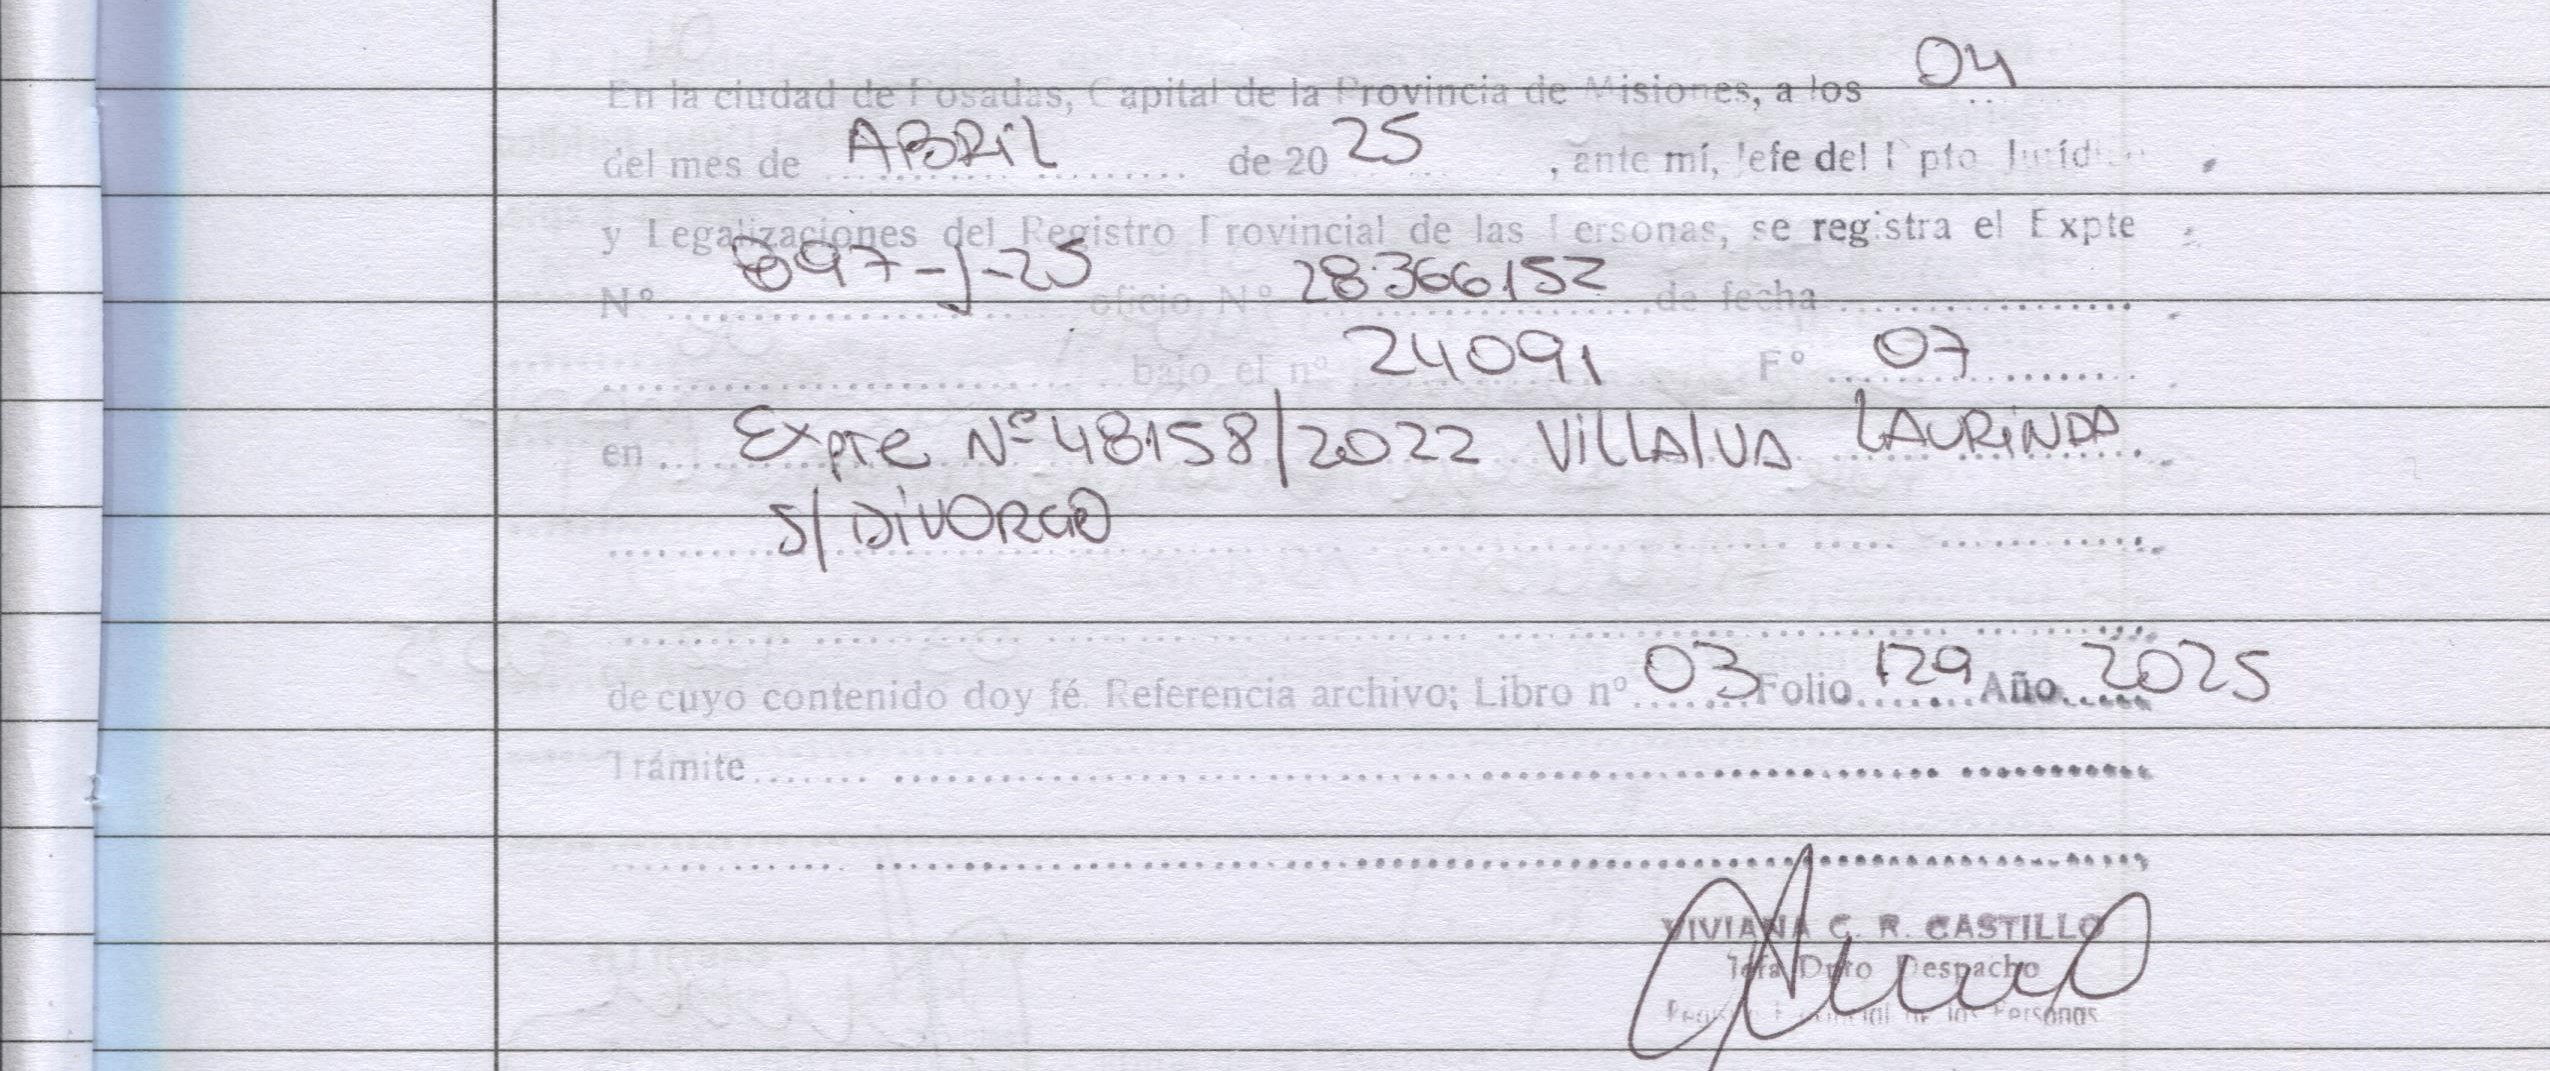 En la ciudad de Posadas, Capital de la Provincia de Misiones, a los 04
del mes de ABRIL de 20 25, ante mí, Jefe del Dpto Jurídico
y Legalizaciones del Registro Provincial de las Personas, se registra el Expte
Nº 897-J-25 oficio Nº 28366152 de fecha
bajo el nº 24091 Fº 07
en Expte Nº 48158/2022 VILLALVA LAURINDA
S/ DIVORCIO
de cuyo contenido doy fé. Referencia archivo; Libro nº 03 Folio 129 Año 2025
Trámite
VIVIANA C. R. CASTILLO
Jefa Dpto Despacho
Registro Provincial de las Personas